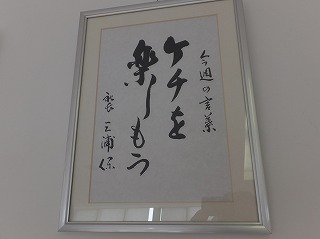 今週の言葉
ケチを
楽しもう
社長 三浦保